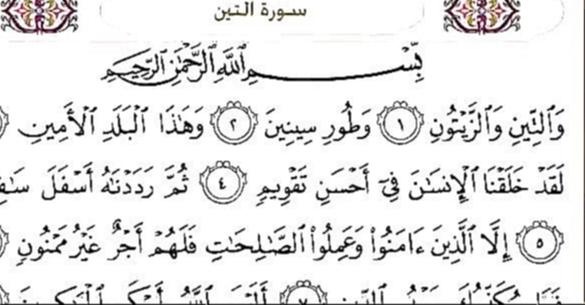 سورة التين
بِسْمِ ٱللَّهِ ٱلرَّحْمَٰنِ ٱلرَّحِيمِ
وَٱلتِّينِ وَٱلزَّيْتُونِ ١ وَطُورِ سِينِينَ ٢ وَهَٰذَا ٱلْبَلَدِ ٱلْأَمِينِ
لَقَدْ خَلَقْنَا ٱلْإِنسَٰنَ فِىٓ أَحْسَنِ تَقْوِيمٍ ٤ ثُمَّ رَدَدْنَٰهُ أَسْفَلَ
٥ إِلَّا ٱلَّذِينَ ءَامَنُوا۟ وَعَمِلُوا۟ ٱلصَّٰلِحَٰتِ فَلَهُمْ أَجْرٌ غَيْرُ مَمْنُونٍ